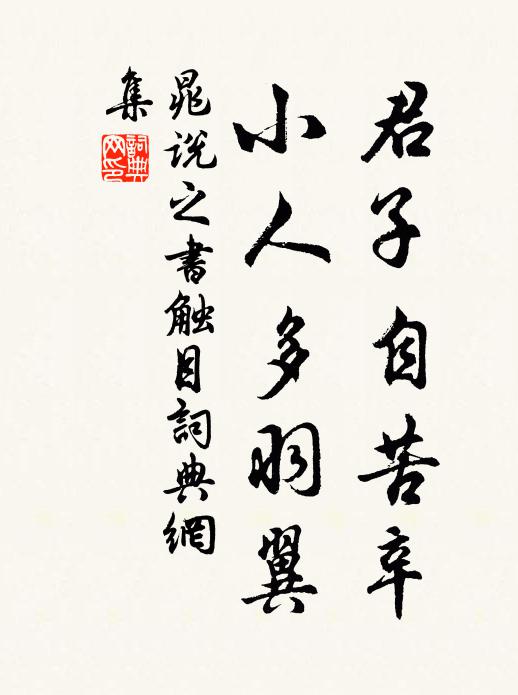 君子自苦辛
小人多羽翼
晁说之書触目詞典網
集
詞典網印